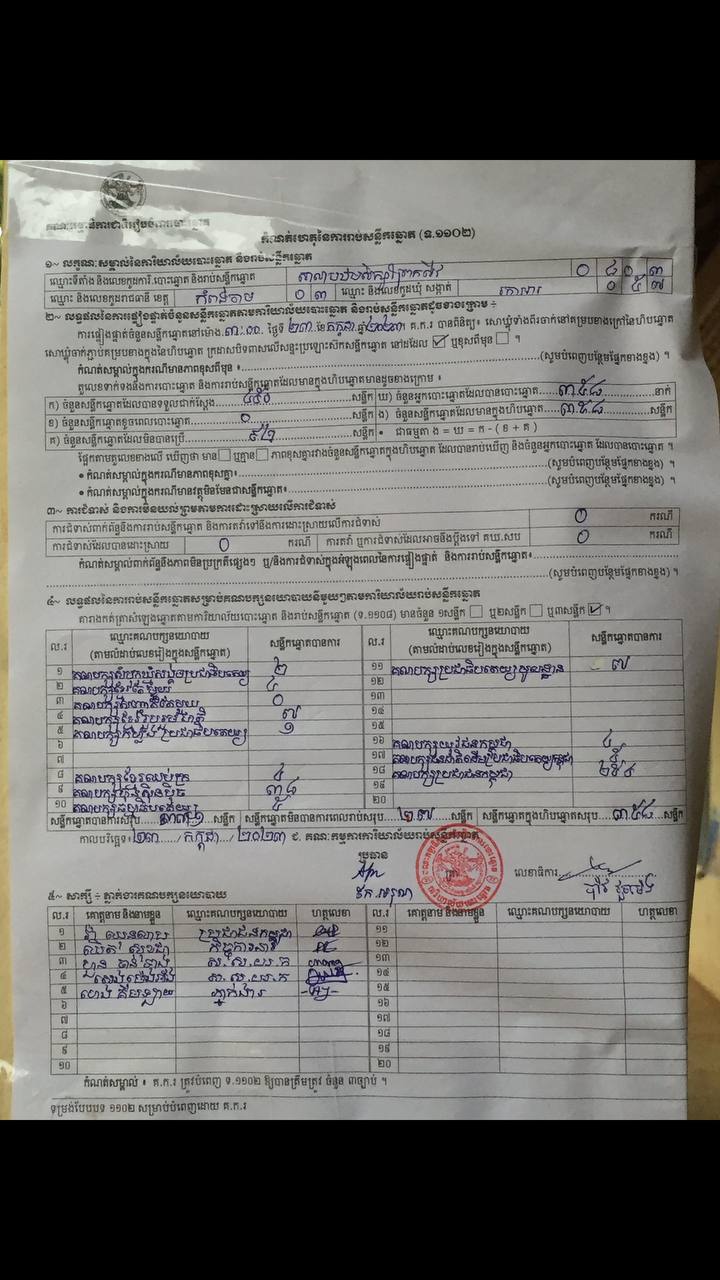 គណៈកម្មាធិការជាតិរៀបចំការបោះឆ្នោត
កំណត់ហេតុនៃការរាប់សន្លឹកឆ្នោត (ទ.១១០២)
១~ លក្ខណៈសម្គាល់នៃការិយាល័យបោះឆ្នោត និងរាប់សន្លឹកឆ្នោត
ឈ្មោះទីតាំង និងលេខកូដការិ.បោះឆ្នោត និងរាប់សន្លឹកឆ្នោត ០ ៨ ០ ៣
ឈ្មោះ និងលេខកូដរាជធានី ខេត្ត កំពង់ចាម ០ ៣ ឈ្មោះ និងលេខកូដឃុំ សង្កាត់ ០ ៥ ៧
២~ លទ្ធផលនៃការផ្ទៀងផ្ទាត់ចំនួនសន្លឹកឆ្នោតតាមការិយាល័យបោះឆ្នោត និងរាប់សន្លឹកឆ្នោតដូចខាងក្រោម ÷
ការផ្ទៀងផ្ទាត់ចំនួនសន្លឹកឆ្នោតនៅម៉ោង ៣:៣០ ថ្ងៃទី ២៣ ខែ កក្កដា ឆ្នាំ ២០២៣ គ.ក.រ បានពិនិត្យ៖ សោឃ្លុំទាំងពីរចាក់នៅគម្របខាងក្រៅនៃហិបឆ្នោត
សោឃ្លុំចាក់ភ្ជាប់គម្របខាងក្នុងនៃហិបឆ្នោត ក្រដាសបិទពាសលើសន្ទះប្រឡោះស៊កសន្លឹកឆ្នោត នៅដដែល ☑ ឬខុសពីមុន ☐ ។
កំណត់សម្គាល់ក្នុងករណីមានភាពខុសពីមុន ៖ (សូមបំពេញបន្ថែមផ្នែកខាងខ្នង) ។
តួលេខទាក់ទងនឹងការបោះឆ្នោត និងការរាប់សន្លឹកឆ្នោតដែលមានក្នុងហិបឆ្នោតមានដូចខាងក្រោម ៖
ក) ចំនួនសន្លឹកឆ្នោតដែលបានទទួលជាក់ស្តែង ៤៥០ សន្លឹក ឃ) ចំនួនអ្នកបោះឆ្នោតដែលបានបោះឆ្នោត ៣៥៨ នាក់
ខ) ចំនួនសន្លឹកឆ្នោតខូចពេលបោះឆ្នោត ០ សន្លឹក ង) ចំនួនសន្លឹកឆ្នោតដែលមានក្នុងហិបឆ្នោត ៣៥៨ សន្លឹក
គ) ចំនួនសន្លឹកឆ្នោតដែលមិនបានប្រើ ៩២ សន្លឹក • ជាធម្មតា ង = ឃ = ក - ( ខ + គ )
ផ្អែកតាមតួលេខខាងលើ ឃើញថា មាន ☐ ឬគ្មាន ☐ ភាពខុសគ្នារវាងចំនួនសន្លឹកឆ្នោតក្នុងហិបឆ្នោត ដែលបានរាប់ឃើញ និងចំនួនអ្នកបោះឆ្នោត ដែលបានបោះឆ្នោត ។
• កំណត់សម្គាល់ក្នុងករណីមានភាពខុសគ្នា៖ (សូមបំពេញបន្ថែមផ្នែកខាងខ្នង) ។
• កំណត់សម្គាល់ក្នុងករណីមានវត្ថុមិនមែនជាសន្លឹកឆ្នោត៖ (សូមបំពេញបន្ថែមផ្នែកខាងខ្នង) ។
៣~ ការជំទាស់ និងការមិនយល់ព្រមតាមការដោះស្រាយលើការជំទាស់
ការជំទាស់ពាក់ព័ន្ធនឹងការរាប់សន្លឹកឆ្នោត និងការតវ៉ាទៅនឹងការដោះស្រាយលើការជំទាស់ ០ ករណី
ការជំទាស់ដែលបានដោះស្រាយ ០ ករណី ការតវ៉ា ឬការជំទាស់ដែលអាចនឹងប្តឹងទៅ គឃ.សប ០ ករណី
កំណត់សម្គាល់ពាក់ព័ន្ធនឹងភាពមិនប្រក្រតីផ្សេងៗ ឬ/និងការជំទាស់ក្នុងអំឡុងពេលនៃការផ្ទៀងផ្ទាត់ និងការរាប់សន្លឹកឆ្នោត៖
(សូមបំពេញបន្ថែមផ្នែកខាងខ្នង) ។
៤~ លទ្ធផលនៃការរាប់សន្លឹកឆ្នោតសម្រាប់គណបក្សនយោបាយនីមួយៗតាមការិយាល័យរាប់សន្លឹកឆ្នោត
តារាងកត់ត្រាសំឡេងឆ្នោតតាមការិយាល័យបោះឆ្នោត និងរាប់សន្លឹកឆ្នោត (ទ.១១០៨) មានចំនួន ១សន្លឹក ☐ ឬ២សន្លឹក ☐ ឬ៣សន្លឹក ☑ ។
ល.រ ឈ្មោះគណបក្សនយោបាយ (តាមលំដាប់លេខរៀងក្នុងសន្លឹកឆ្នោត) សន្លឹកឆ្នោតបានការ ល.រ ឈ្មោះគណបក្សនយោបាយ (តាមលំដាប់លេខរៀងក្នុងសន្លឹកឆ្នោត) សន្លឹកឆ្នោតបានការ
១ គណបក្សសំបុកឃ្មុំសង្គមប្រជាធិបតេយ្យ ២ ១១ គណបក្សប្រជាធិបតេយ្យមូលដ្ឋាន ៧
២ គណបក្សខ្មែរតែមួយ ៤ ១២
៣ ០ ១៣
៤ គណបក្សខ្មែររួបរួមជាតិ ៧ ១៤
៥ គណបក្សកម្លាំងប្រជាធិបតេយ្យ ១ ១៥
៦ ១៦ គណបក្សយុវជនកម្ពុជា ៤
៧ ១៧ គណបក្សជនជាតិដើមប្រជាធិបតេយ្យកម្ពុជា
៨ គណបក្សខ្មែរឈប់ក្រ ១៨ គណបក្សប្រជាជនកម្ពុជា
៩ គណបក្សហ៊្វុនស៊ិនប៉ិច ៣៨ ១៩
១០ គណបក្សធម្មាធិបតេយ្យ ៥ ២០
សន្លឹកឆ្នោតបានការសរុប ៣៣១ សន្លឹក សន្លឹកឆ្នោតមិនបានការពេលរាប់សរុប ២៧ សន្លឹក សន្លឹកឆ្នោតក្នុងហិបឆ្នោតសរុប ៣៥៨ សន្លឹក
កាលបរិច្ឆេទ៖ ២៣ / កក្កដា / ២០២៣ ជ. គណៈកម្មការការិយាល័យរាប់សន្លឹកឆ្នោត
ប្រធាន
ត្រា លេខាធិការ
៥~ សាក្សី ÷ ភ្នាក់ងារគណបក្សនយោបាយ
ល.រ គោត្តនាម និងនាមខ្លួន ឈ្មោះគណបក្សនយោបាយ ហត្ថលេខា ល.រ គោត្តនាម និងនាមខ្លួន ឈ្មោះគណបក្សនយោបាយ ហត្ថលេខា
១ ប្រជាជនកម្ពុជា ១១
២ ១២
៣ ស.ស.យ.ក ១៣
៤ ស.ស.យ.ក ១៤
៥ ហេង គឹមឡាយ ភ្នាក់ងារ ១៥
៦ ១៦
៧ ១៧
៨ ១៨
៩ ១៩
១០ ២០
កំណត់សម្គាល់ ៖ គ.ក.រ ត្រូវបំពេញ ទ.១១០២ ឱ្យបានត្រឹមត្រូវ ចំនួន ៣ច្បាប់ ។
ទម្រង់បែបបទ ១១០២ សម្រាប់បំពេញដោយ គ.ក.រ